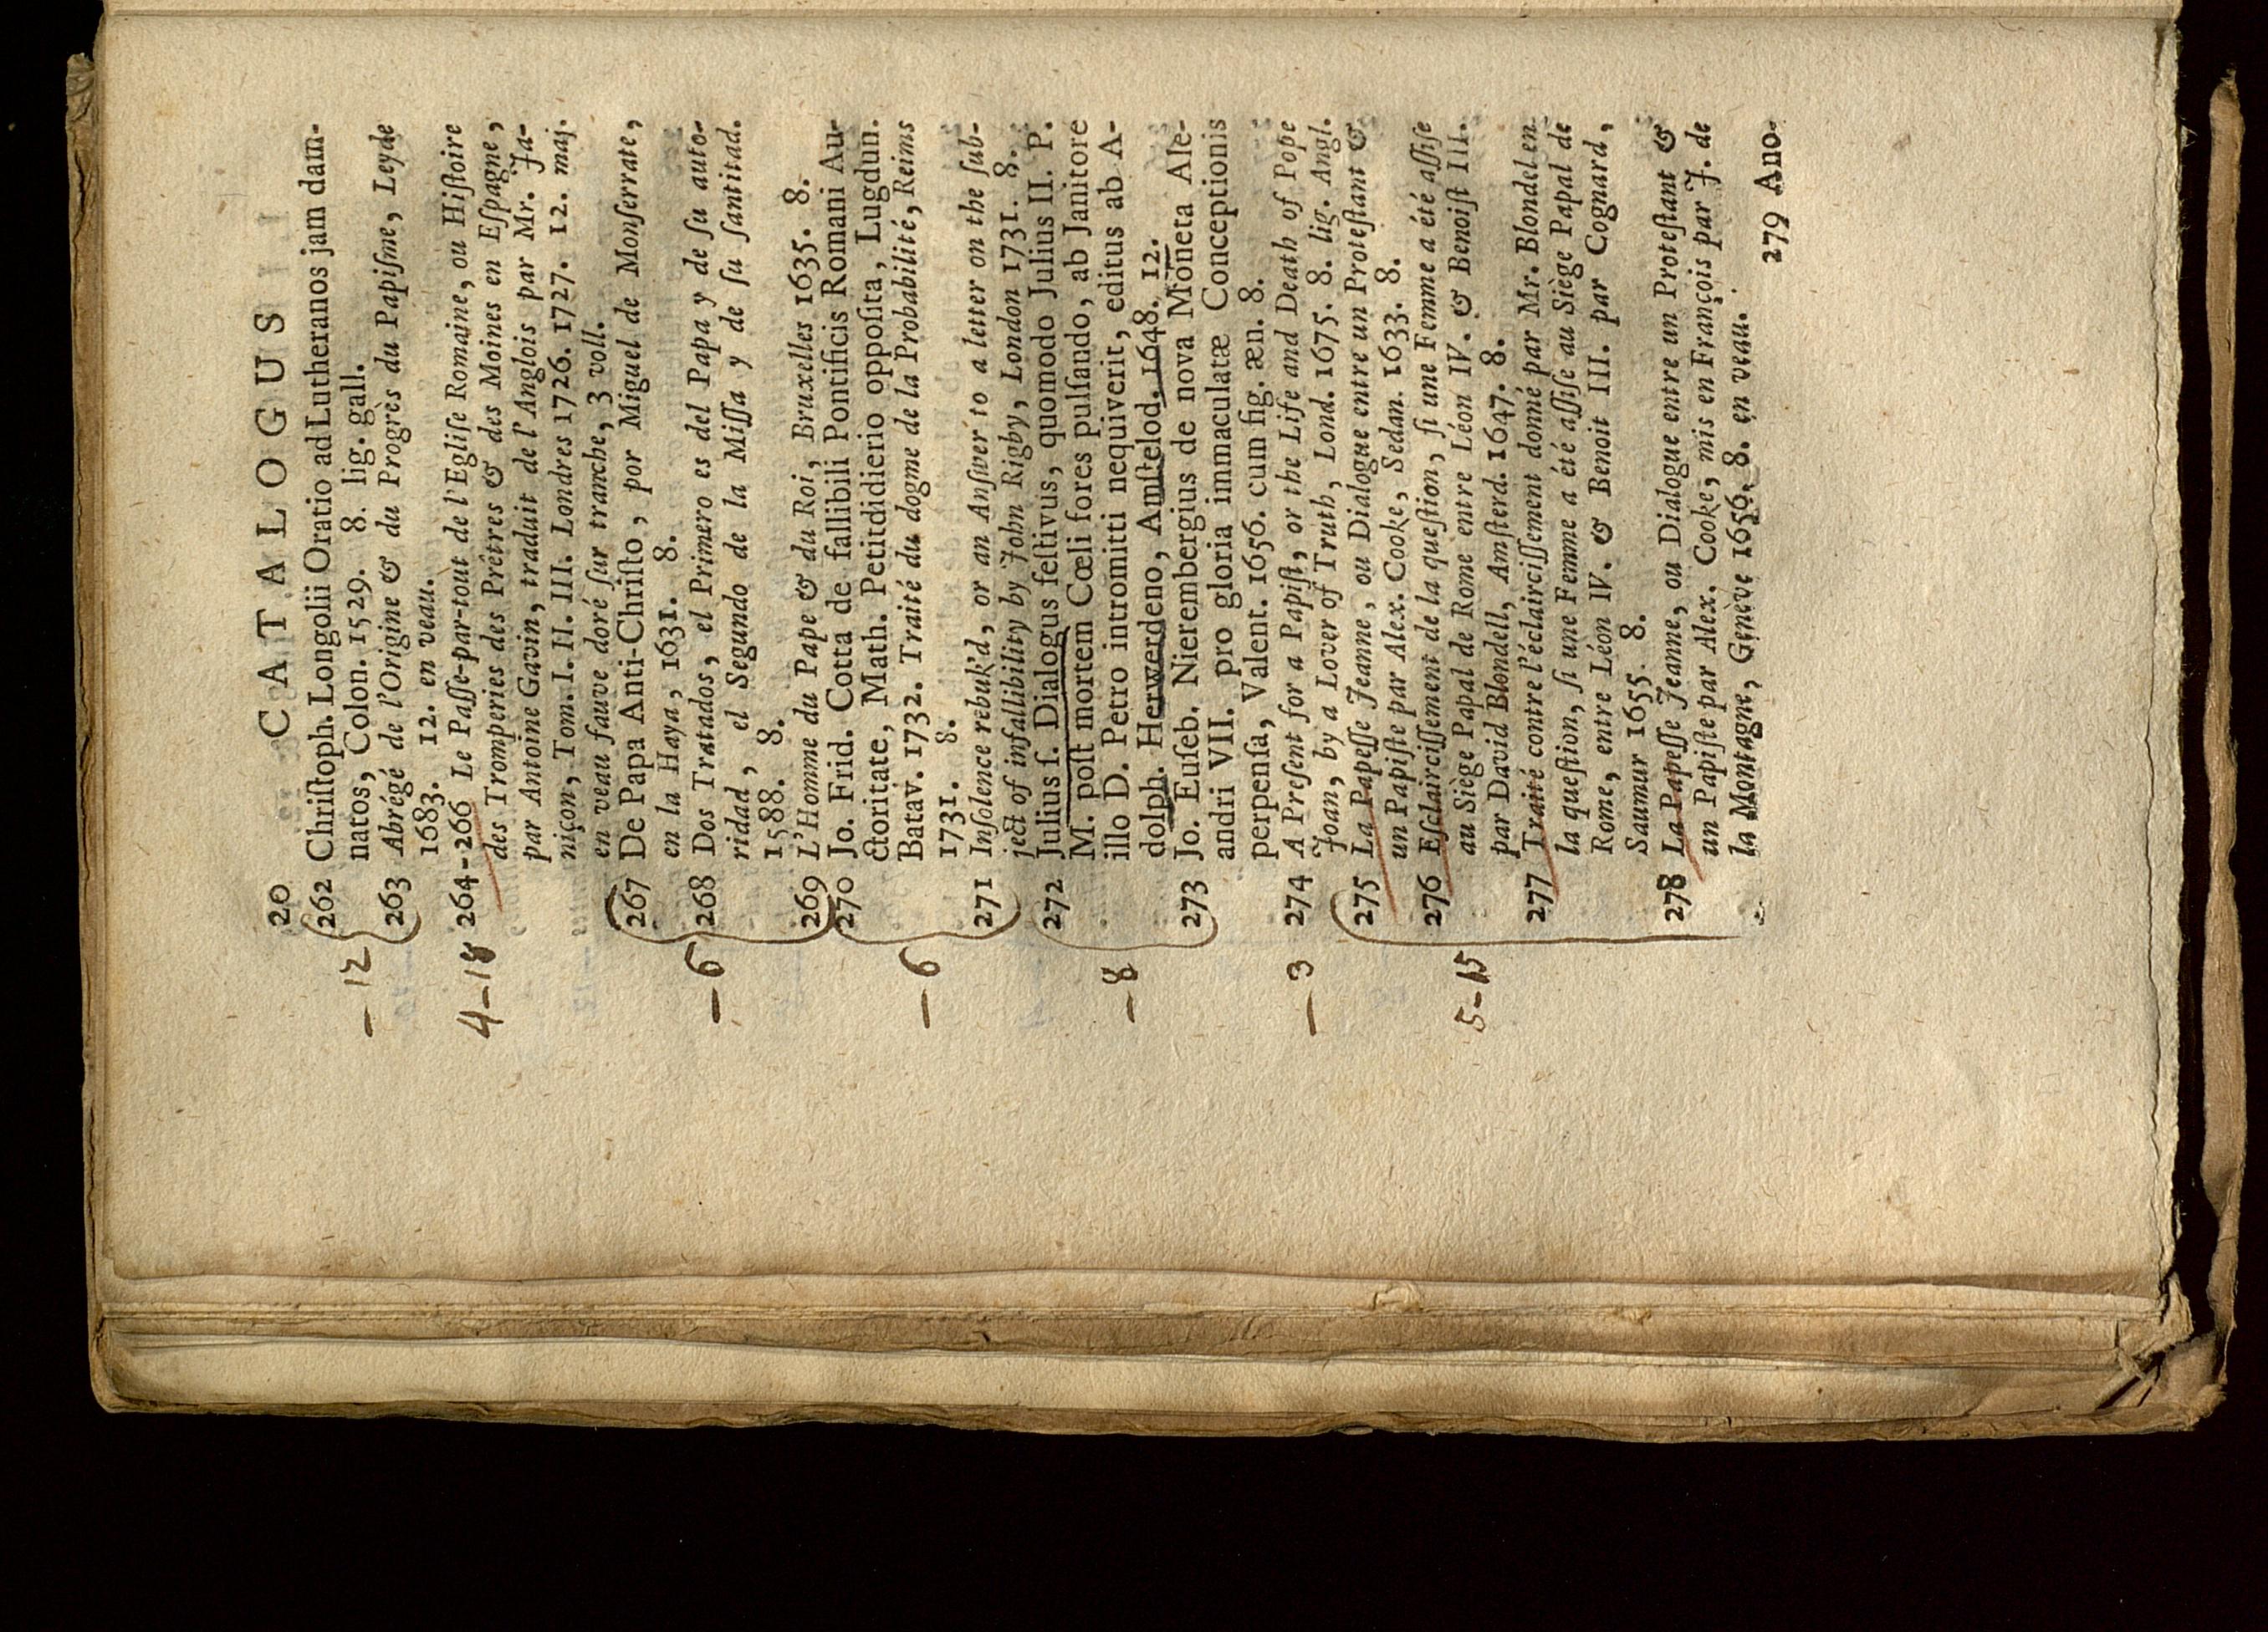 20 CATALOGUS
262 Chriſtoph. Longolii Oratio ad Lutheranos jam dam-
natos, Colon. 1529. 8. lig. gall.
— 12
263 Abrégé de l'Origine & du Progrès du Papiſme, Leyde
1683. 12. en veau.
4-18 264-266 Le Paſſe-par-tout de l'Egliſe Romaine, ou Hiſtoire
des Tromperies des Prêtres & des Moines en Eſpagne,
par Antoine Gavin, traduit de l'Anglois par Mr. Ja-
niçon, Tom. I. II. III. Londres 1726. 1727. 12. maj.
en veau fauve doré ſur tranche, 3 voll.
267 De Papa Anti-Chriſto, por Miguel de Monſerrate,
en la Haya, 1631. 8.
— 6 268 Dos Tratados, el Primero es del Papa y de ſu auto-
ridad, el Segundo de la Miſſa y de ſu ſantitad.
1588. 8.
269 L'Homme du Pape & du Roi, Bruxelles 1635. 8.
270 Jo. Frid. Cotta de fallibili Pontificis Romani Au-
ctoritate, Math. Petitdidierio oppoſita, Lugdun.
Batav. 1732. Traité du dogme de la Probabilité, Reims
— 6
1731. 8.
271 Inſolence rebuk'd, or an Anſwer to a letter on the ſub-
ject of infallibility by John Rigby, London 1731. 8.
272 Julius ſ. Dialogus feſtivus, quomodo Julius II. P.
M. poſt mortem Cœli fores pulſando, ab Janitore
illo D. Petro intromitti nequiverit, editus ab A-
— 8
dolph. Herwerdeno, Amſtelod. 1648. 12.
273 Jo. Euſeb. Nierembergius de nova Moneta Ale-
andri VII. pro gloria immaculatæ Conceptionis
perpenſa, Valent. 1656. cum fig. æn. 8.
— 3 274 A Preſent for a Papiſt, or the Life and Death of Pope
Joan, by a Lover of Truth, Lond. 1675. 8. lig. Angl.
275 La Papeſſe Jeanne, ou Dialogue entre un Proteſtant &
un Papiſte par Alex. Cooke, Sedan. 1633. 8.
276 Eſclairciſſement de la queſtion, ſi une Femme a été aſſiſe
au Siège Papal de Rome entre Léon IV. & Benoiſt III.
5-15
par David Blondell, Amſterd. 1647. 8.
277 Traité contre l'éclairciſſement donné par Mr. Blondel en
la queſtion, ſi une Femme a été aſſiſe au Siège Papal de
Rome, entre Léon IV. & Benoit III. par Cognard,
Saumur 1655. 8.
278 La Papeſſe Jeanne, ou Dialogue entre un Proteſtant &
un Papiſte par Alex. Cooke, mis en François par J. de
la Montagne, Genève 1656. 8. en veau.
279 Ano-